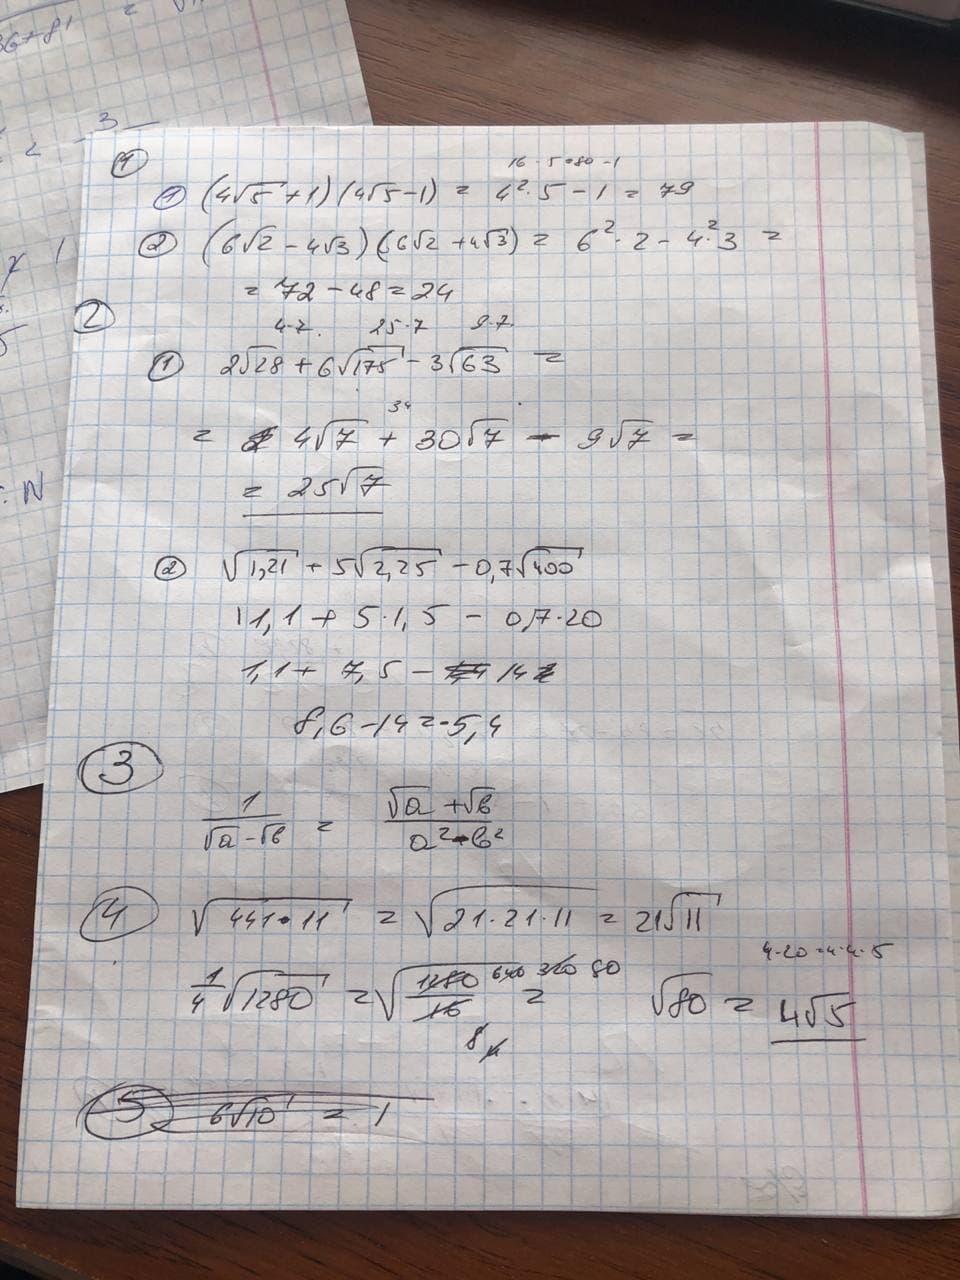 36+81 =
3
①
16·5=80-1
① (4√5+1)(4√5-1) = 4²·5-1 = 79
② (6√2-4√3)(6√2+4√3) = 6²·2-4²·3 =
= 72-48=24
②
4·7. 25·7 9·7
① 2√28 + 6√175 - 3√63 =
34
= 4√7 + 30√7 - 9√7 =
= 25√7
② √1,21 + 5√2,25 - 0,7√400
1,1 + 5·1,5 - 0,7·20
1,1 + 7,5 - 14
8,6-14=-5,4
③
1/(√a-√b) = (√a+√b)/(a²-b²)
④ √441·11 = √21·21·11 = 21√11
4·20=4·4·5
1/4 √1280 = √1280/16 640 320 80 = √80 = 4√5
8 4
⑤ 6√10 = 1
: N